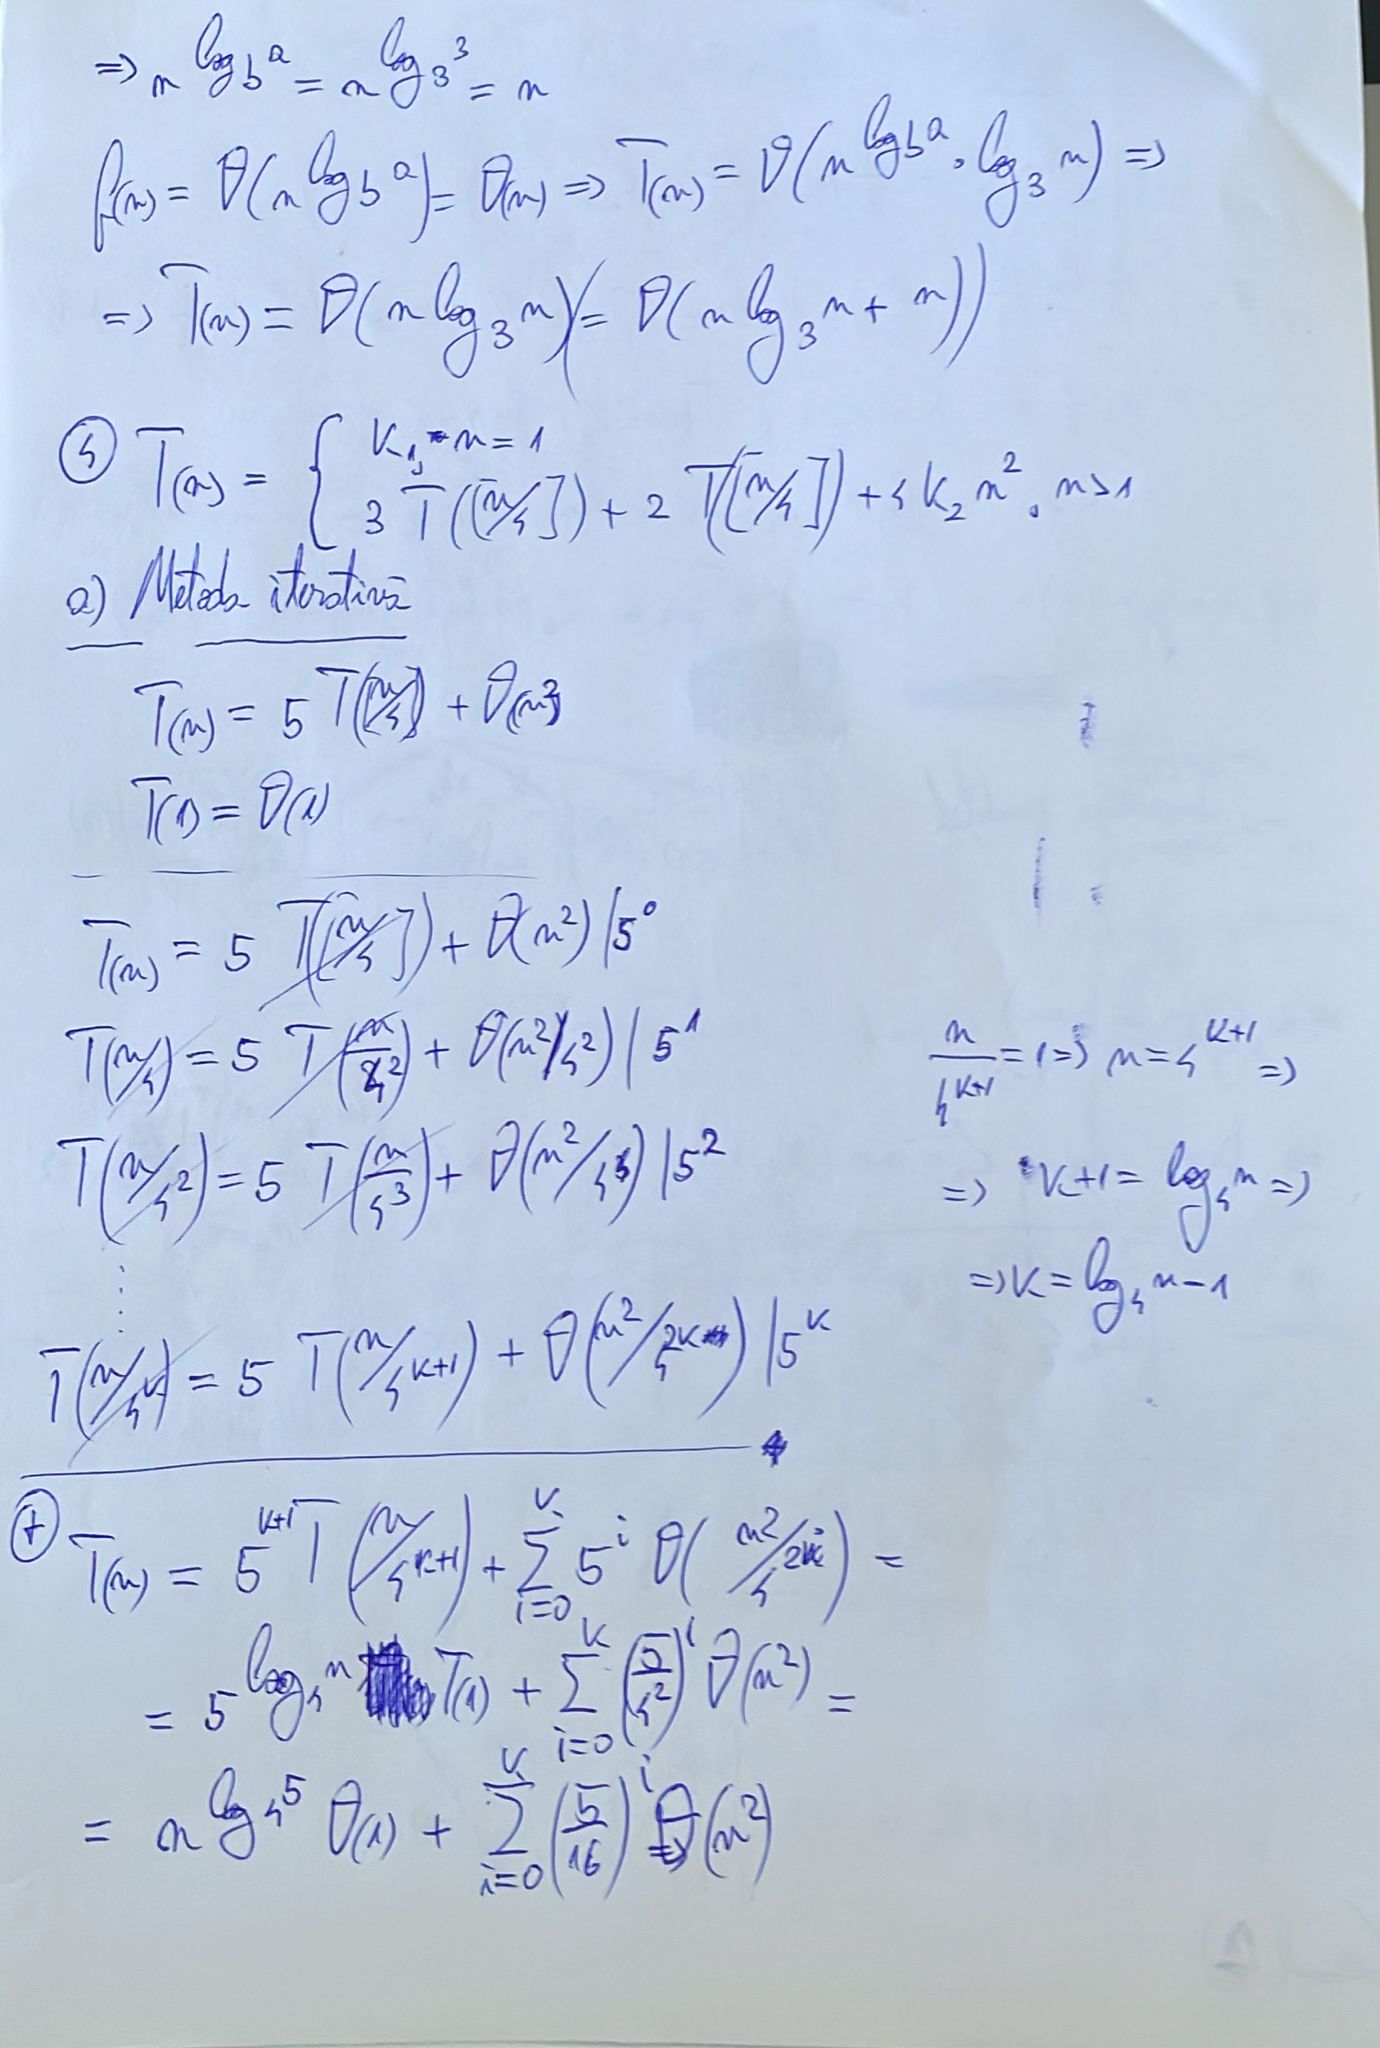 => n^(log_b a) = n^(log_3 3) = n
f(n) = θ(n^(log_b a)) = θ(n) => T(n) = θ(n^(log_b a) · log_3 n) =>
=> T(n) = θ(n log_3 n) (= θ(n log_3 n + n))
④ T(n) = { k_1, n = 1
3 T([n/4]) + 2 T([n/4]) + 4 k_2 n², n>1
a) Metoda iterativă
T(n) = 5 T([n/4]) + θ(n²)
T(1) = θ(1)
T(n) = 5 T([n/4]) + θ(n²) | 5^0
T(n/4) = 5 T(n/4²) + θ(n²/4²) | 5^1
n/4^(k+1) = 1 => n = 4^(k+1) =>
T(n/4²) = 5 T(n/4³) + θ(n²/4) | 5²
=> k+1 = log_4 n =>
=> k = log_4 n - 1
⋮
T(n/4^k) = 5 T(n/4^(k+1)) + θ(n²/4^(2k)) | 5^k
⊕ T(n) = 5^(k+1) T(n/4^(k+1)) + Σ_(i=0)^k 5^i θ(n²/4^(2i)) =
= 5^(log_4 n) T(1) + Σ_(i=0)^k (5/4²)^i θ(n²) =
= n^(log_4 5) θ(1) + Σ_(i=0)^k (5/16)^i θ(n²)